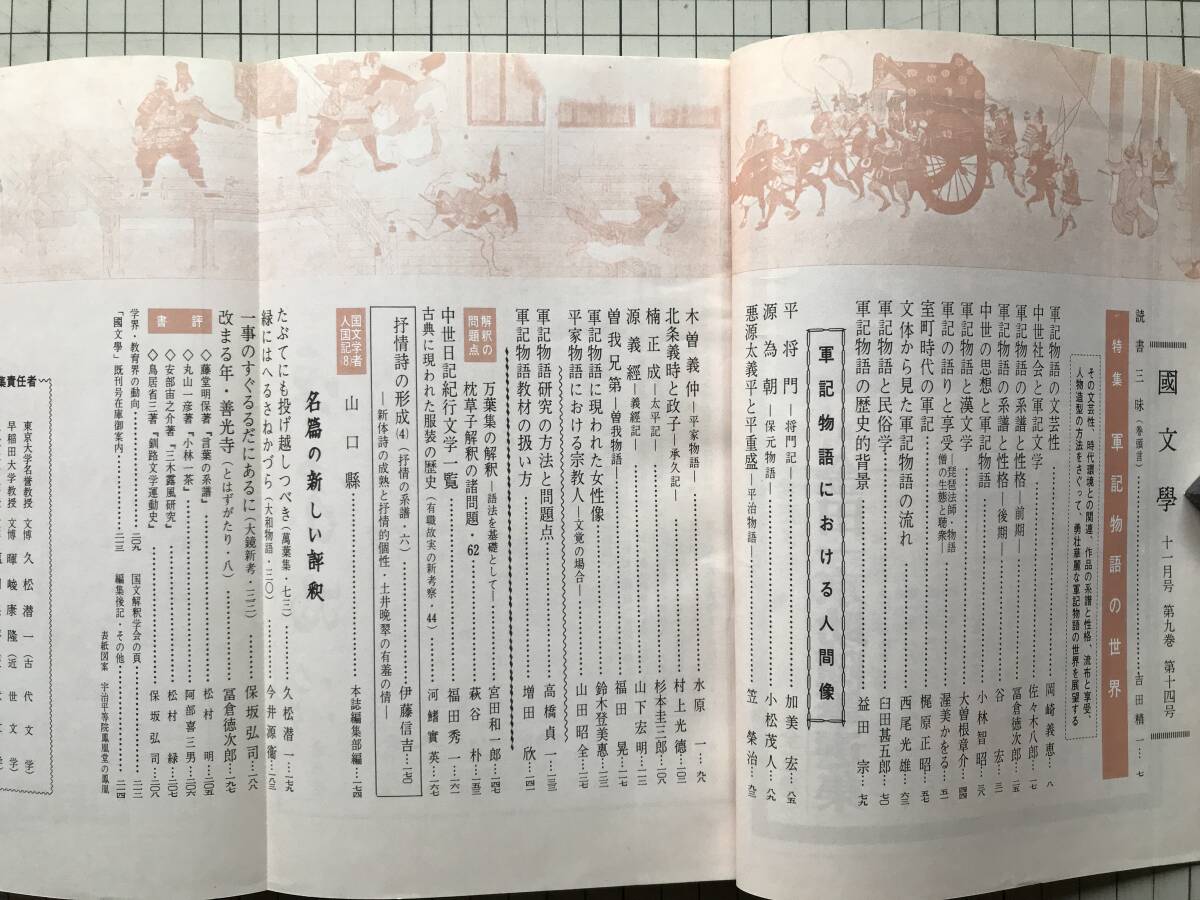 國文學 十一月号 第九巻 第十四号
読書三昧（巻頭言）……吉田精一…七
特集 軍記物語の世界
その文芸性、時代環境との関連、作品の系譜と性格、流布と享受、
人物造型の方法をさぐって、勇壮華麗な軍記物語の世界を展望する
軍記物語の文芸性……岡崎義恵…八
中世社会と軍記文学……佐々木八郎…一七
軍記物語の系譜と性格―前期―……冨倉徳次郎…二五
軍記物語の系譜と性格―後期―……谷宏…三一
中世の思想と軍記物語……小林智昭…三八
軍記物語と漢文学……大曽根章介…四四
軍記の語りと享受―琵琶法師・物語僧の生態と聴衆―……渥美かをる…五一
室町時代の軍記……梶原正昭…五七
文体から見た軍記物語の流れ……西尾光雄…六三
軍記物語と民俗学……臼田甚五郎…七〇
軍記物語の歴史的背景……益田宗…七九
軍記物語における人間像
平将門―将門記―……加美宏…八五
源為朝―保元物語―……小松茂人…八九
悪源太義平と平重盛―平治物語―……笠榮治…九三
木曽義仲―平家物語―……水原一…九八
北条義時と政子―承久記―……村上光徳…一〇三
楠正成―太平記―……杉本圭三郎…一〇八
源義經―義經記―……山下宏明…一一三
曽我兄弟―曽我物語―……福田晃…一一七
軍記物語に現われた女性像……鈴木登美惠…一二三
平家物語における宗教人―文覚の場合―……山田昭全…一二八
軍記物語研究の方法と問題点……高橋貞一…一三三
軍記物語教材の扱い方……増田欣…一四一
解釈の問題点
万葉集の解釈―語法を基礎として―……宮田和一郎…一四七
枕草子解釈の諸問題・62……萩谷朴…一五三
中世日記紀行文学一覧……福田秀一…一六一
古典に現われた服装の歴史（有職故実の新考察・44）……河鰭實英…一六七
抒情詩の形成(4)（抒情の系譜 六）……伊藤信吉…一七〇
―新体詩の成熟と抒情的個性・土井晩翠の有羞の情―
国文学者人国記8
山口縣……本誌編集部編…一七四
名篇の新しい評釈
たぶてにも投げ越しつべき（萬葉集・七三）……久松潜一…一七九
緑にはへるさねかづら（大和物語・三〇）……今井源衛…一八三
一事のすぐるるだにあるに（大鏡新考・三二）……保坂弘司…一八八
改まる年・善光寺（とはずがたり・八）……冨倉徳次郎…一九七
書評
◇藤堂明保著『言葉の系譜』……松村明…二〇五
◇丸山一彦著『小林一茶』……阿部喜三男…二〇六
◇安部宙之介著『三木露風研究』……松村緑…二〇七
◇鳥居省三著『釧路文学運動史』……保坂弘司…二〇八
学界・教育界の動向……二〇九
国文解釈学会の頁……二一二
「國文學」既刊号在庫御案内……二一三
編集後記・その他……二一四
表紙図案 宇治平等院鳳凰堂の鳳凰
集責任者
東京大学名誉教授 文博 久松潜一（古代文学）
早稲田大学教授 文博 暉峻康隆（近世文学）